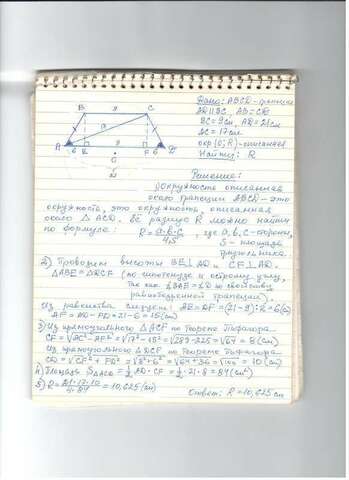 B 9 C
a
A 6 E F 6 D
O
Дано: ABCD - трапеция
AD∥BC, AB = CD
BC = 9 см, AD = 21 см
AC = 17 см
окр (O; R) - описанная
Найти: R
Решение:
1) Окружность описанная
около трапеции ABCD - это
окружность, описанная
около △ACD. Её радиус R можно найти
по формуле: R = a·b·c/4S, где a, b, c - стороны,
S - площадь
треугольника.
2) Проведём высоты BE⊥AD и CF⊥AD.
△ABE = △DCF (по гипотенузе и острому углу,
так как ∠BAE = ∠D по свойству
равнобедренной трапеции).
Из равенства следует: AE = DF = (21-9):2 = 6 (см)
AF = AD - FD = 21-6 = 15 (см)
3) Из прямоугольного △ACF по теореме Пифагора
CF = √AC²-AF² = √17²-15² = √289-225 = √64 = 8 (см)
Из прямоугольного △DCF по теореме Пифагора
CD = √CF²+FD² = √8²+6² = √64+36 = √100 = 10 (см)
4) Площадь S△ACD = 1/2 AD·CF = 1/2·21·8 = 84 (см²)
5) R = 21·17·10/4·84 = 10,625 (см)
Ответ: R = 10,625 см